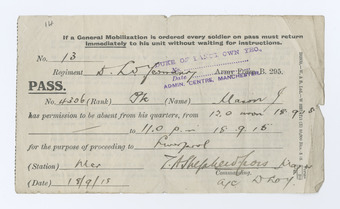 If a General Mobilization is ordered every soldier on pass must return
Immediately to his unit without waiting for instructions.
No. 13
DUKE OF LANC'S OWN YEO.
Regiment
Army Form B. 295.
Date
ADMIN. CENTRE, MANCHESTER
PASS.
No. (Rank) Pte (Name) Mason J
has permission to be absent from his quarters, from 12.0 noon 18-9-15
to 11.0 p.m 18.9.15
for the purpose of proceeding to Liverpool
(Station) Major
Commanding
(Date) 18/9/15 D L O Y